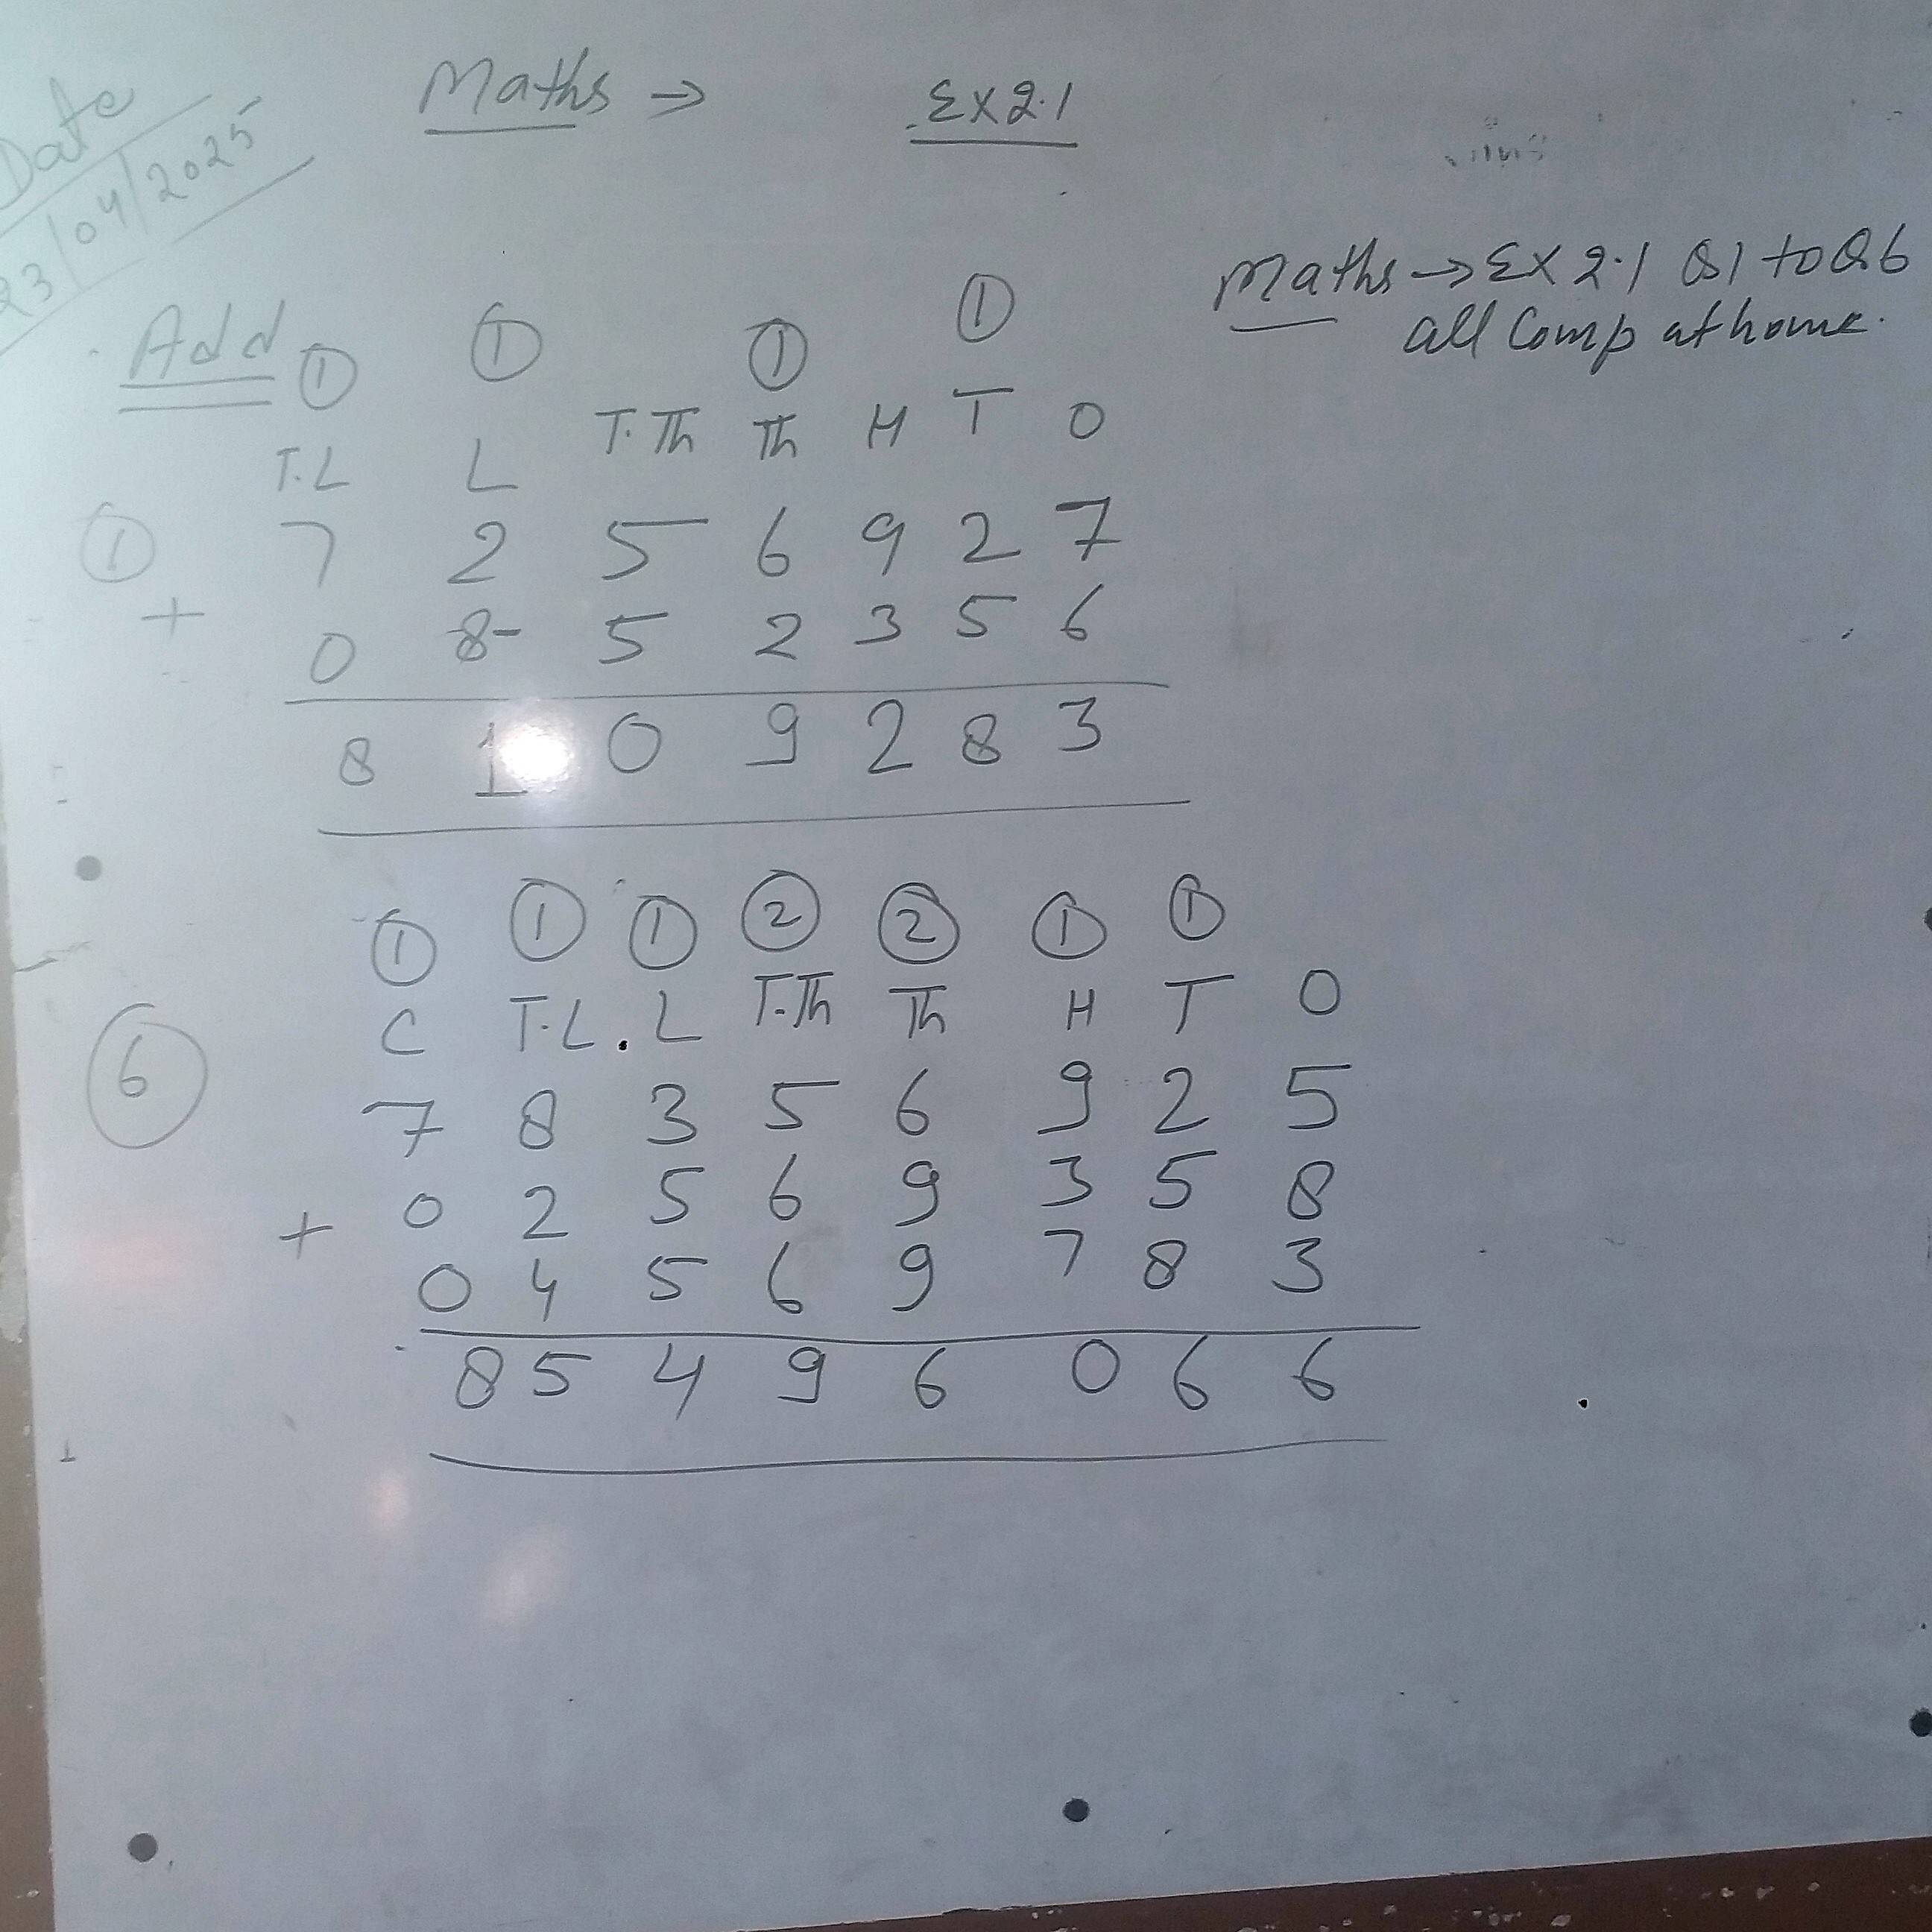 Date
23/04/2025
Maths → Ex 2.1
Maths → Ex 2.1 Q1 to Q6
all Comp at home.
Add
① ① ① ①
T.L L T.Th Th H T O
① 7 2 5 6 9 2 7
+ 0 8 5 2 3 5 6
8 1 0 9 2 8 3
① ① ① ② ② ① ①
C T.L. L T.Th Th H T O
⑥ 7 8 3 5 6 9 2 5
0 2 5 6 9 3 5 8
+ 0 4 5 6 9 7 8 3
8 5 4 9 6 0 6 6